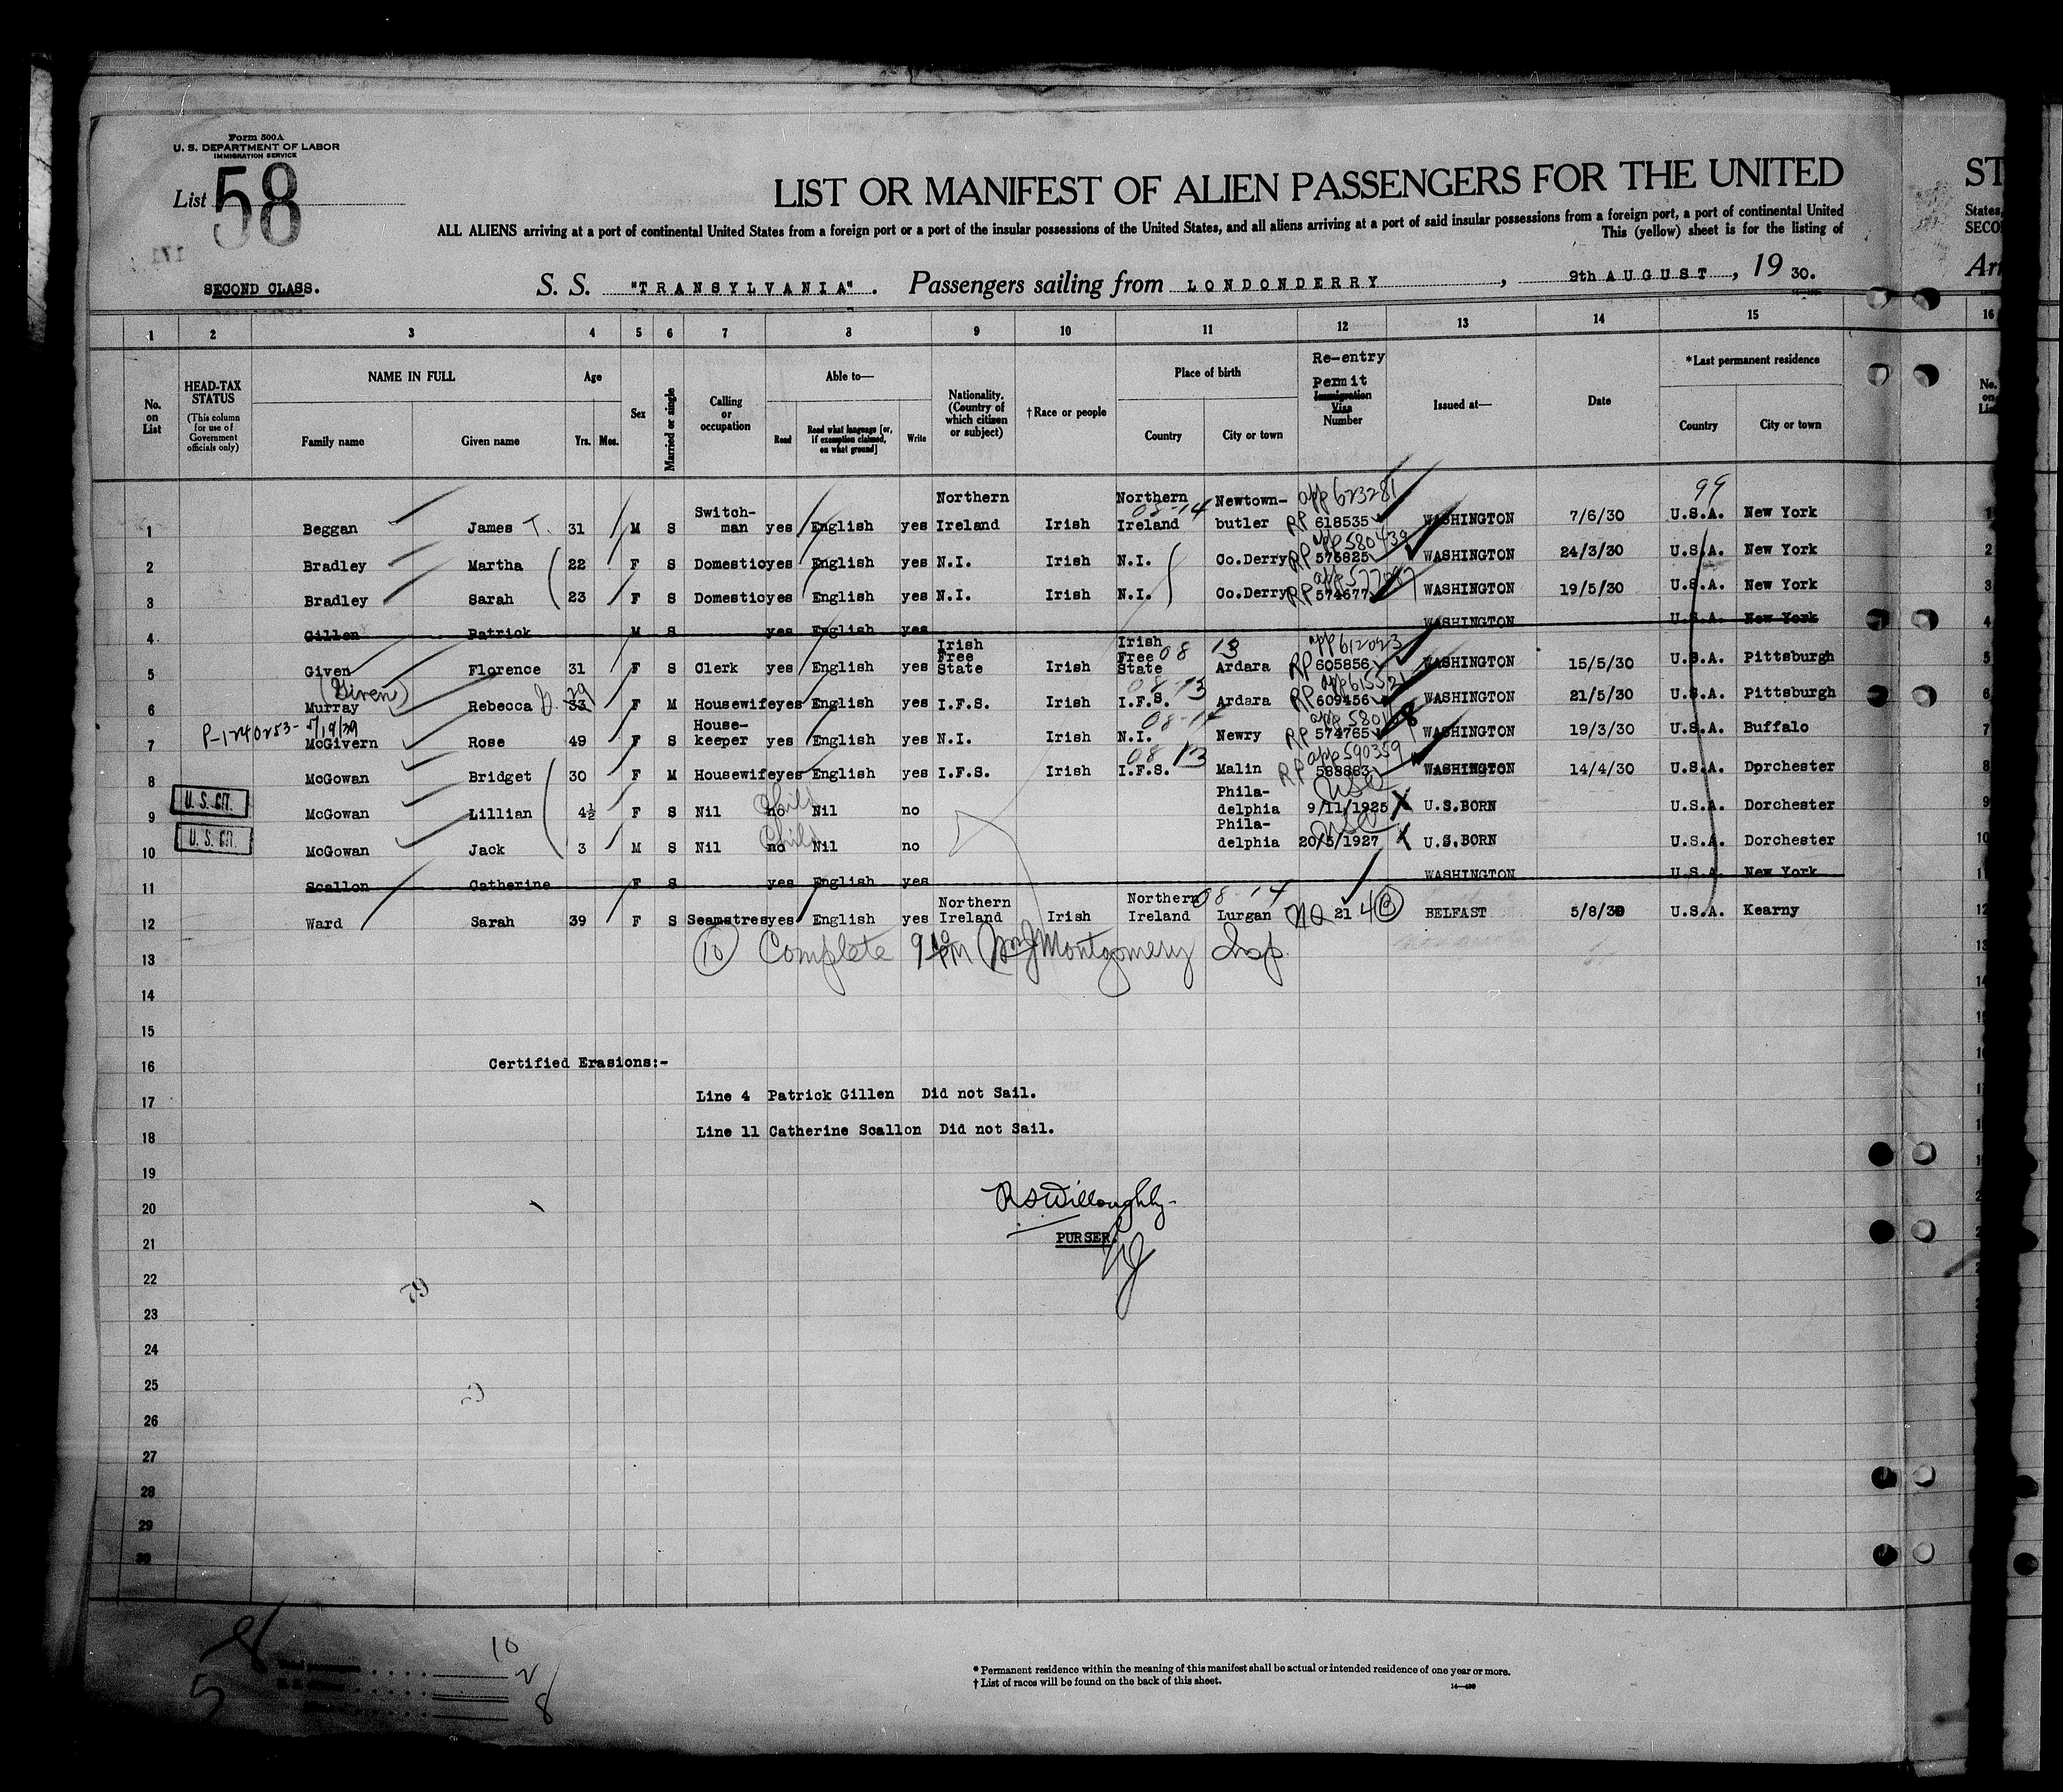 Form 500A
U. S. DEPARTMENT OF LABOR
IMMIGRATION SERVICE
List 58
LIST OR MANIFEST OF ALIEN PASSENGERS FOR THE UNITED
ST
ALL ALIENS arriving at a port of continental United States from a foreign port or a port of the insular possessions of the United States, and all aliens arriving at a port of said insular possessions from a foreign port, a port of continental United
States,
This (yellow) sheet is for the listing of
SECO
171
SECOND CLASS.
S. S. "TRANSYLVANIA". Passengers sailing from LONDONDERRY, 9th AUGUST, 19 30.
Arr
1 2 3 4 5 6 7 8 9 10 11 12 13 14 15 16
No. on List
HEAD-TAX STATUS (This column for use of Government officials only)
NAME IN FULL
Family name Given name
Age
Yrs. Mos.
Sex
Married or single
Calling or occupation
Able to—
Read Read what language [or, if exemption claimed, on what ground] Write
Nationality. (Country of which citizen or subject)
†Race or people
Place of birth
Country City or town
Re-entry Permit Immigration Visa Number
Issued at—
Date
*Last permanent residence
Country City or town
No. on List
99
1 Beggan James T. 31 M S Switch-man yes English yes Northern Ireland Irish Northern Ireland 08-14 Newtown-butler app 623281 RP 618535 WASHINGTON 7/6/30 U.S.A. New York 1
2 Bradley Martha 22 F S Domestic yes English yes N.I. Irish N.I. Co.Derry app 580439 RP 576825 WASHINGTON 24/3/30 U.S.A. New York 2
3 Bradley Sarah 23 F S Domestic yes English yes N.I. Irish N.I. Co.Derry RP 574677 WASHINGTON 19/5/30 U.S.A. New York 3
4 Gillen Patrick M S yes English yes WASHINGTON U.S.A. New York 4
5 Given Florence 31 F S Clerk yes English yes Irish Free State Irish Irish Free State 08 13 Ardara app 612023 RP 605856 WASHINGTON 15/5/30 U.S.A. Pittsburgh 5
(Given)
6 Murray Rebecca G. 33 29 F M Housewife yes English yes I.F.S. Irish I.F.S. 08-13 Ardara RP 609456 WASHINGTON 21/5/30 U.S.A. Pittsburgh 6
P-1240253-
7 McGivern Rose 49 F S House-keeper yes English yes N.I. Irish N.I. 08-14 Newry RP 574765 WASHINGTON 19/3/30 U.S.A. Buffalo 7
8 McGowan Bridget 30 F M Housewife yes English yes I.F.S. Irish I.F.S. 08 13 Malin app 590359 RP 588863 WASHINGTON 14/4/30 U.S.A. Dorchester 8
U. S. CIT.
9 McGowan Lillian 4½ F S Nil no Child Nil no Phila-delphia USC 9/11/1925 X U.S.BORN U.S.A. Dorchester 9
U. S. CIT.
10 McGowan Jack 3 M S Nil no Child Nil no Phila-delphia USC 20/5/1927 X U.S.BORN U.S.A. Dorchester 10
11 Scallon Catherine F S yes English yes WASHINGTON U.S.A. New York 11
12 Ward Sarah 39 F S Seamstress yes English yes Northern Ireland Irish Northern Ireland 08-14 Lurgan NQ 21 4(B) BELFAST 5/8/30 U.S.A. Kearny 12
13 (10) Complete 9 PM Montgomery Insp.
14
15
16 Certified Erasions:-
17 Line 4 Patrick Gillen Did not Sail.
18 Line 11 Catherine Scallon Did not Sail.
19
20 R S Willoughby
21 PURSER.
22
23
24
25
26
27
28
29
30
Total passengers 10
2
8
5
* Permanent residence within the meaning of this manifest shall be actual or intended residence of one year or more.
† List of races will be found on the back of this sheet.